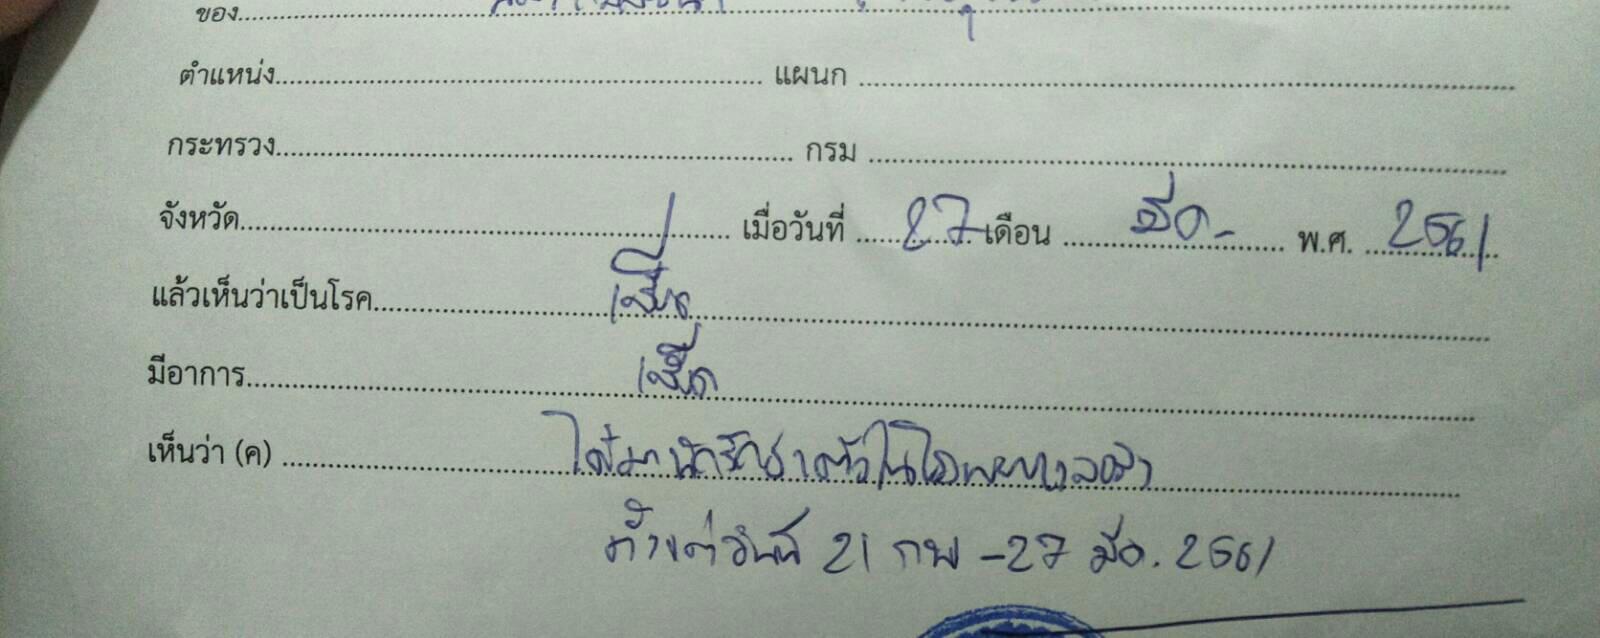 ของ
ตำแหน่ง แผนก
กระทรวง กรม
จังหวัด เมื่อวันที่ 27 เดือน มีค. พ.ศ. 2561
แล้วเห็นว่าเป็นโรค
มีอาการ
เห็นว่า (ค) ได้มาพักรักษาตัวในโรงพยาบาลจริง
ตั้งแต่วันที่ 21 กพ - 27 มีค. 2561